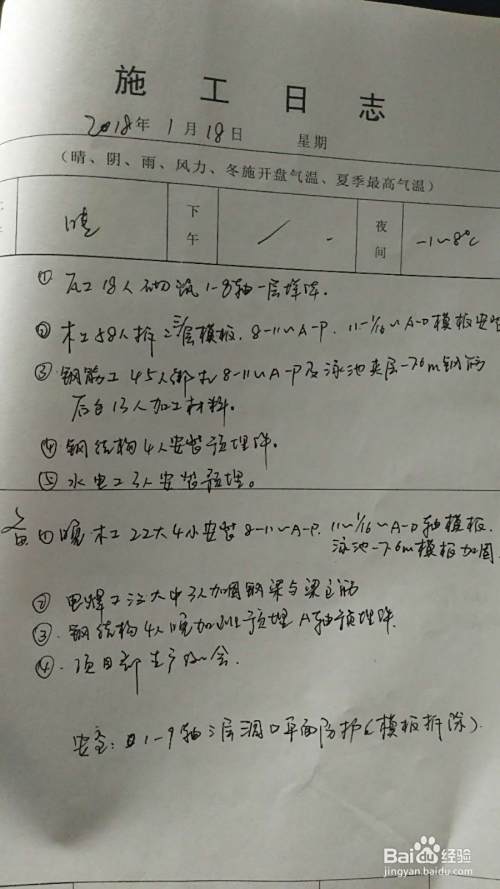 施 工 日 志
2018年 1 月 18 日 星期
（晴、阴、雨、风力、冬施开盘气温、夏季最高气温）
晴 下午 夜间 -1~8℃
① 瓦工18人砌筑1-8轴一层
② 木工58人拆 层模板. 8-11~A-P. 11-1/16~A-D模板安
③ 钢筋工45人绑扎8-11~A-P及泳池夹层-7.6m钢筋
后台13人加工材料.
④ 钢结构4人安装预埋件.
⑤ 水电工3人安装预埋。
① 晚 木工22大4小安装8-11~A-P. 11~1/16~A-D轴模板.
泳池-7.6m模板加固
② 电焊工 3人加固钢梁与梁主筋
③. 钢结构4人晚加班预埋A轴预埋件.
④. 项目部生产 会.
安全: 1-9轴 层洞口平面防护(模板拆除).
Baidu经验
jingyan.baidu.com